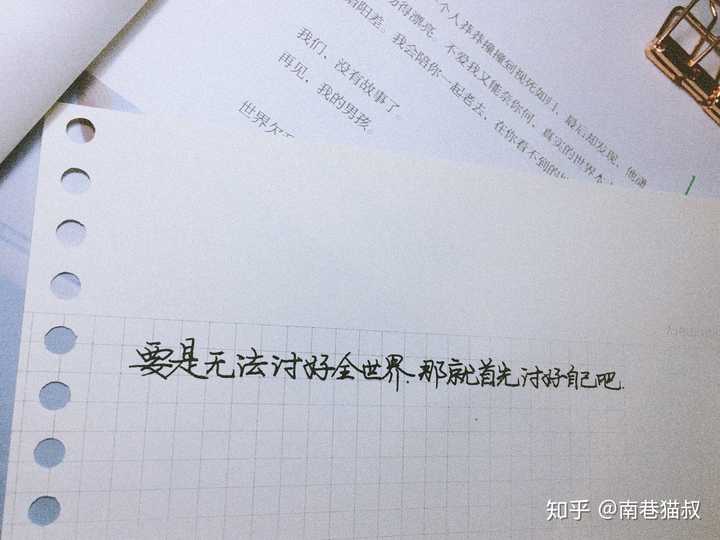 个人莽莽撞撞到视死如归,最后却发现,他谦
得漂亮,不爱我又能奈你何,真实的世界
阳差。我会陪你一起老去,在你看不到的
我们,没有故事了。
再见,我的男孩。
世界欠
要是无法讨好全世界.那就首先讨好自己吧.
知乎 @南巷猫叔